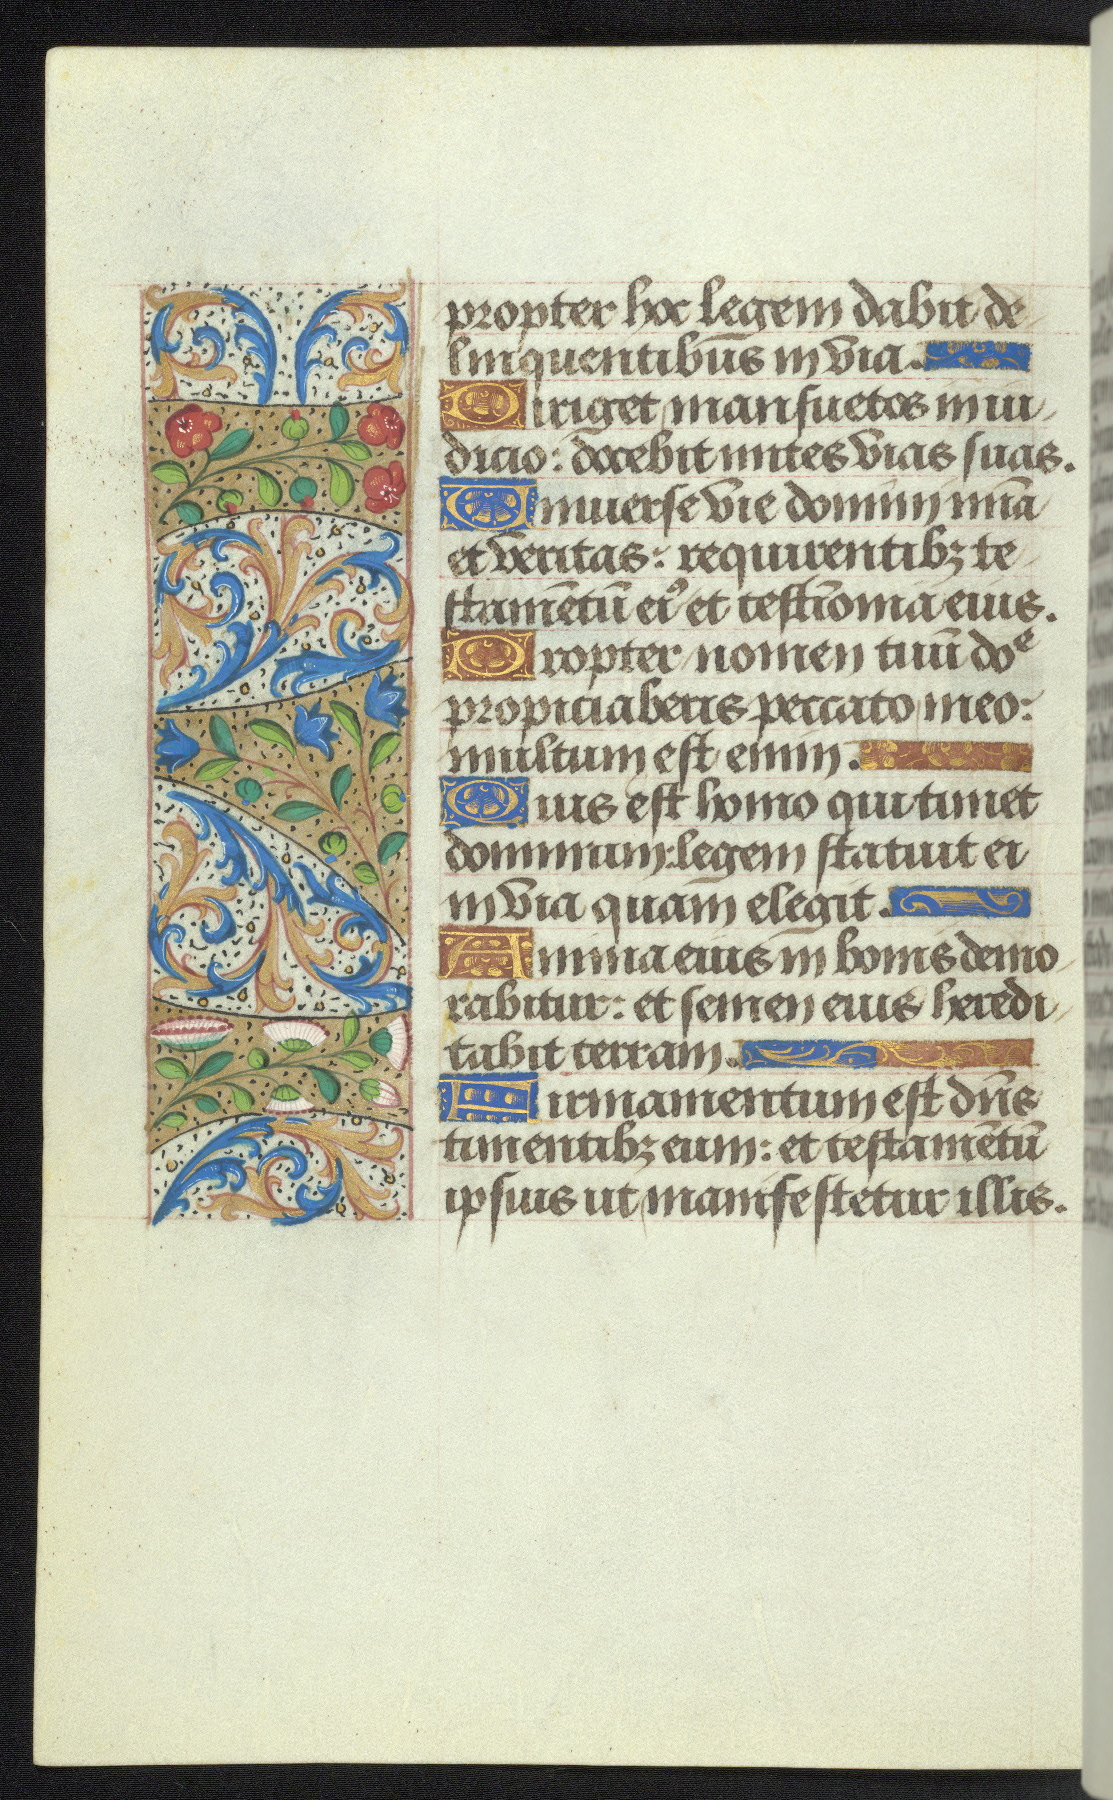 propter hoc legem dabit de
linquentibus in via.
Diriget mansuetos in iu
dicio: docebit mites vias suas.
Universe vie domini mia
et veritas: requirentibz te
stamētū eiꝰ et testīonia eius.
Propter nomen tuū doᵉ
propiciaberis peccato meo:
multum est enim.
Quis est homo qui timet
dominum: legem statuit ei
in via quam elegit.
Anima eius in bonis demo
rabitur: et semen eius heredi
tabit terram.
Firmamentum est dn̄s
timentibz eum: et testamētū
ipsius ut manifestetur illis.